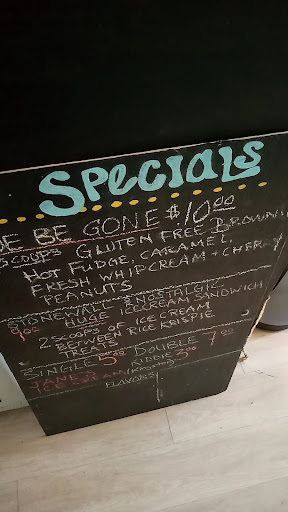 SPECIALS
E BE GONE $10.00
SCOOPS GLUTEN FREE BROWNI
HOT FUDGE, CARAMEL,
FRESH WHIPCREAM + CHERRY
PEANUTS
STONEWALL NOSTALGIC
9.00 HUGE ICECREAM SANDWICH
2 SCOOPS OF ICE CREAM
BETWEEN RICE KRISPIE
TREATS
SINGLE 5.00 DOUBLE 7.00
3.00
FLAVORS